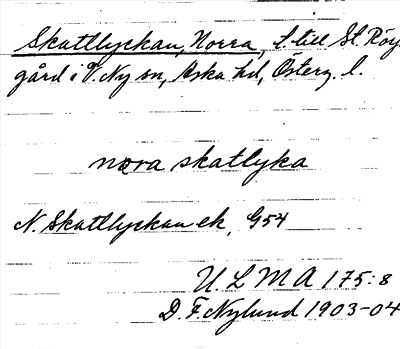 Skattlyckan, Norra, t. till St. Röj
gård i V. Ny sn, Aska hd, Österg. l.
nora skatlyka
N. Skattlyckan ek, G54
U. L M A 175:8
D. F. Nylund 1903-04